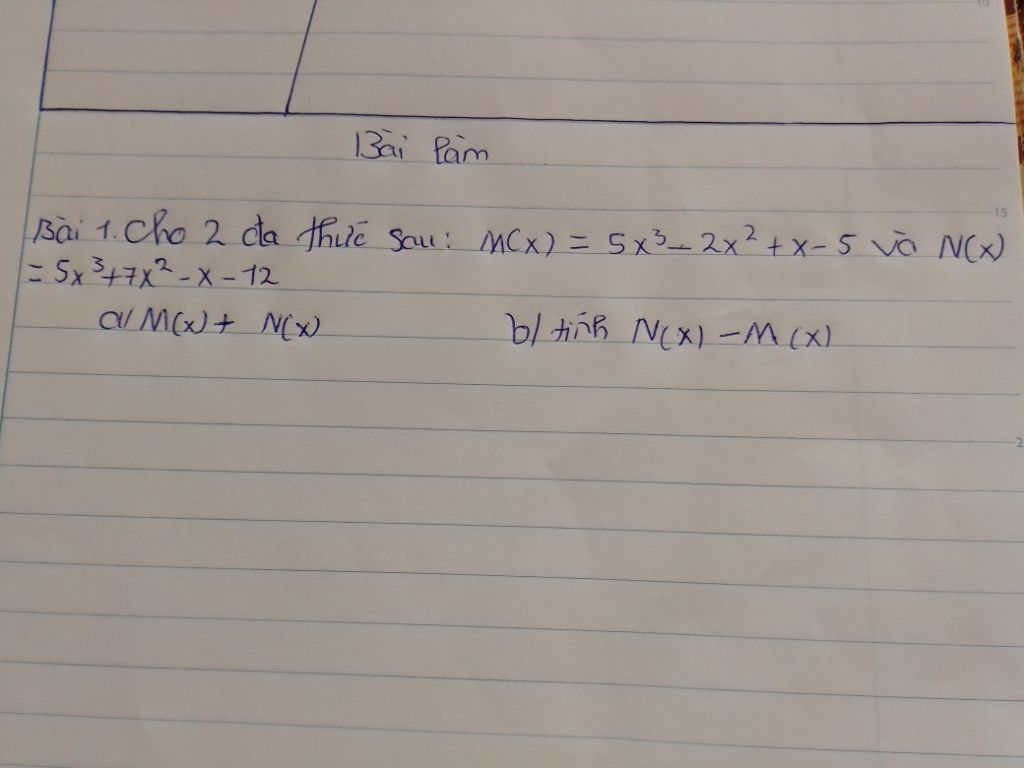 Bài làm
15
Bài 1. Cho 2 đa thức sau: M(x) = 5x³ - 2x² + x - 5 và N(x)
= 5x³ + 7x² - x - 12
a/ M(x) + N(x) b/ tính N(x) - M(x)
2